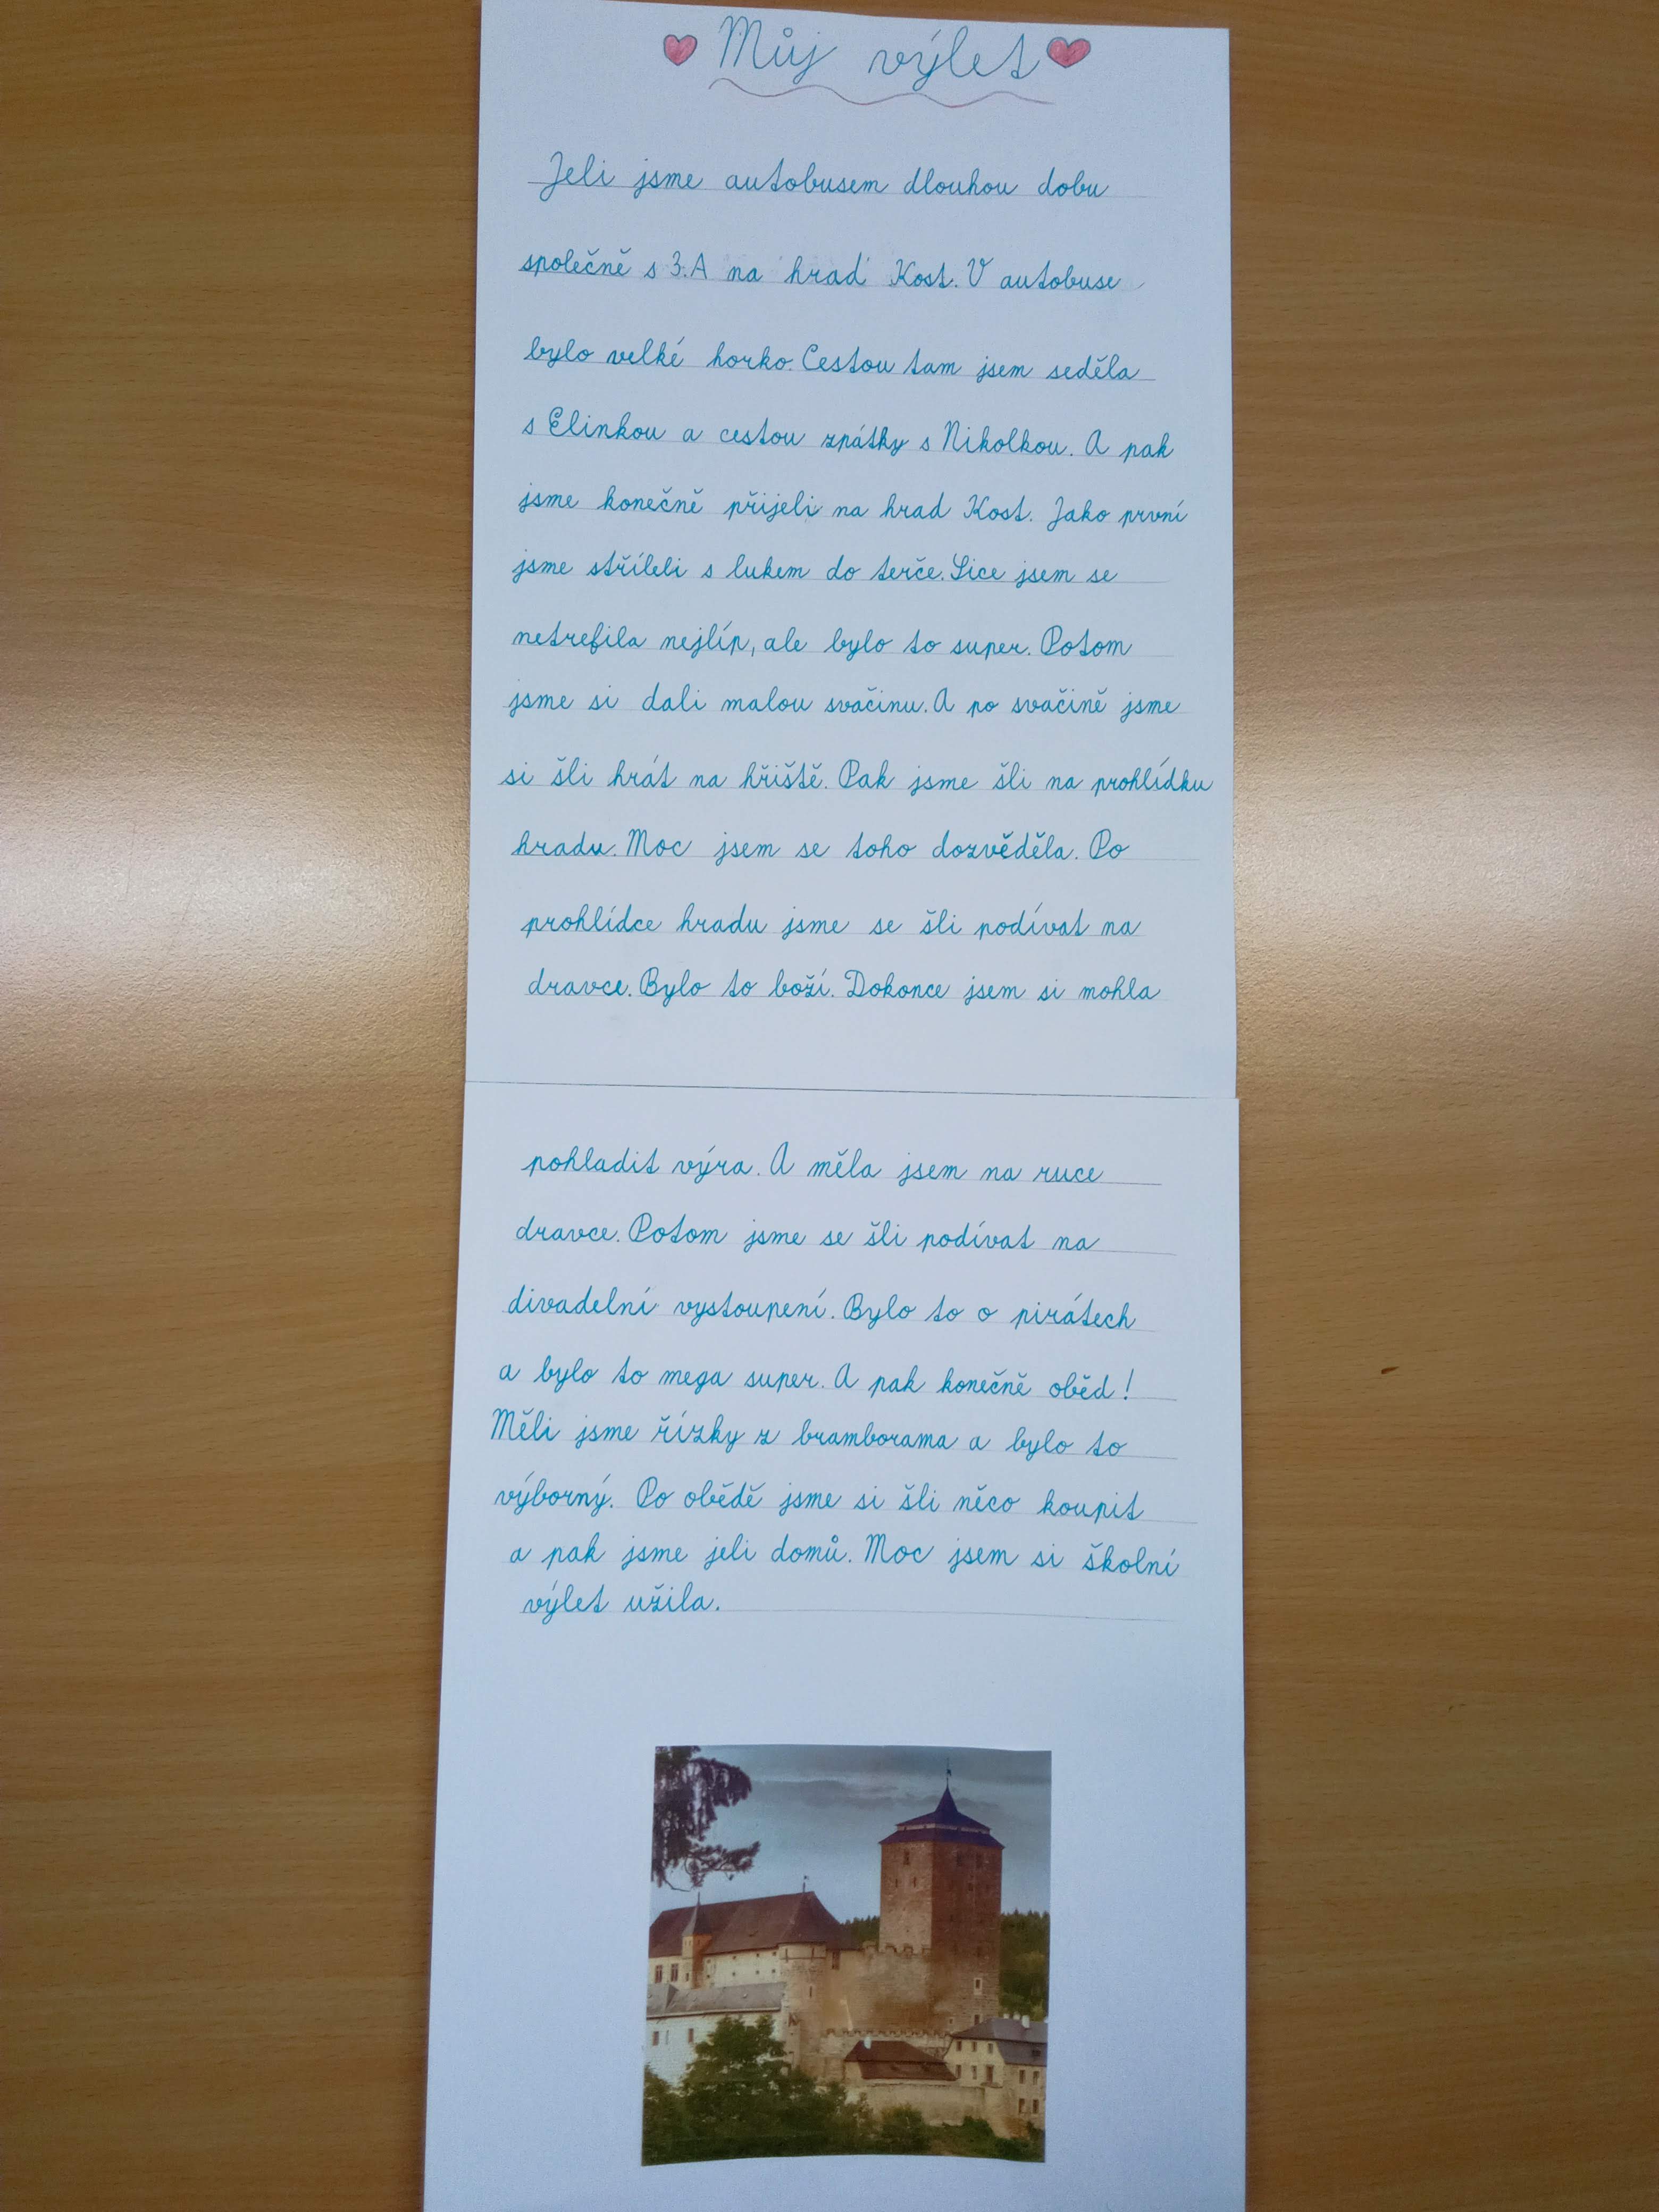 Můj výlet
Jeli jsme autobusem dlouhou dobu
společně s 3.A na hrad Kost. V autobuse
bylo velké horko. Cestou tam jsem seděla
s Elinkou a cestou zpátky s Nikolkou. A pak
jsme konečně přijeli na hrad Kost. Jako první
jsme stříleli s lukem do terče. Sice jsem se
netrefila nejlíp, ale bylo to super. Potom
jsme si dali malou svačinu. A po svačině jsme
si šli hrát na hřiště. Pak jsme šli na prohlídku
hradu. Moc jsem se toho dozvěděla. Po
prohlídce hradu jsme se šli podívat na
dravce. Bylo to boží. Dokonce jsem si mohla
pohladit výra. A měla jsem na ruce
dravce. Potom jsme se šli podívat na
divadelní vystoupení. Bylo to o pirátech
a bylo to mega super. A pak konečně oběd!
Měli jsme řízky z bramborama a bylo to
výborný. Po obědě jsme si šli něco koupit
a pak jsme jeli domů. Moc jsem si školní
výlet užila.